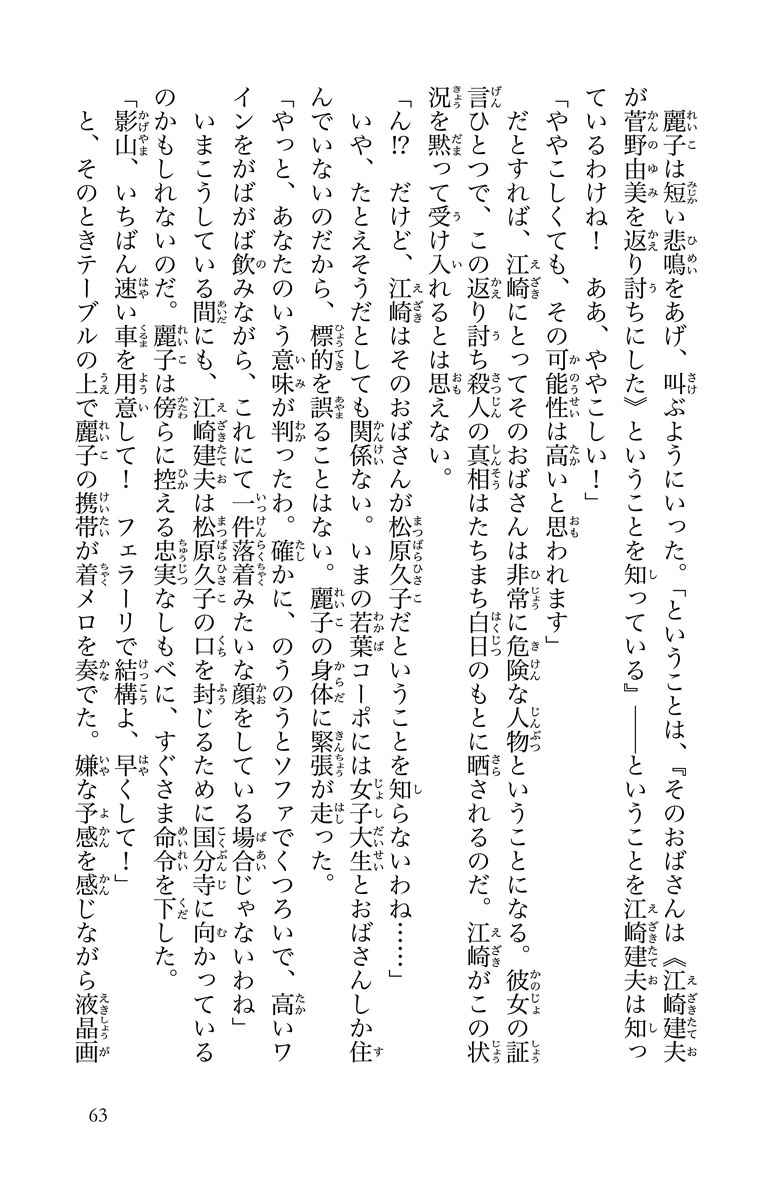 麗子は短い悲鳴をあげ、叫ぶようにいった。「ということは、『そのおばさんは《江崎建夫
が菅野由美を返り討ちにした》ということを知っている』――ということを江崎建夫は知っ
ているわけね！　ああ、ややこしい！」
「ややこしくても、その可能性は高いと思われます」
　だとすれば、江崎にとってそのおばさんは非常に危険な人物ということになる。彼女の証
言ひとつで、この返り討ち殺人の真相はたちまち白日のもとに晒されるのだ。江崎がこの状
況を黙って受け入れるとは思えない。
「ん!?　だけど、江崎はそのおばさんが松原久子だということを知らないわね……」
　いや、たとえそうだとしても関係ない。いまの若葉コーポには女子大生とおばさんしか住
んでいないのだから、標的を誤ることはない。麗子の身体に緊張が走った。
「やっと、あなたのいう意味が判ったわ。確かに、のうのうとソファでくつろいで、高いワ
インをがばがば飲みながら、これにて一件落着みたいな顔をしている場合じゃないわね」
　いまこうしている間にも、江崎建夫は松原久子の口を封じるために国分寺に向かっている
のかもしれないのだ。麗子は傍らに控える忠実なしもべに、すぐさま命令を下した。
「影山、いちばん速い車を用意して！　フェラーリで結構よ、早くして！」
　と、そのときテーブルの上で麗子の携帯が着メロを奏でた。嫌な予感を感じながら液晶画
63